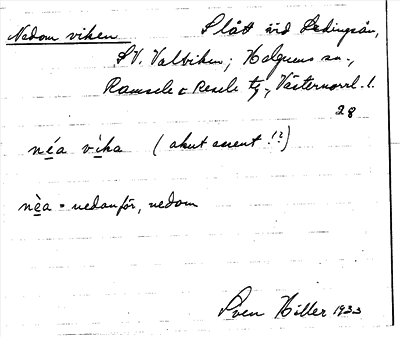 Nedom viken Slått vid Ledingsån,
SV. Valviken; Helgums sn.,
Ramsele o Resele tg, Västernorrl. l.
28
néa vika (akut accent!?)
nèa = nedanför, nedom
Sven Hiller 1933